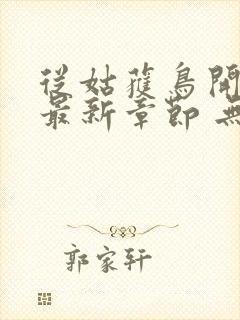 從姑蘿鳥開
最新章節 無
郭家轩